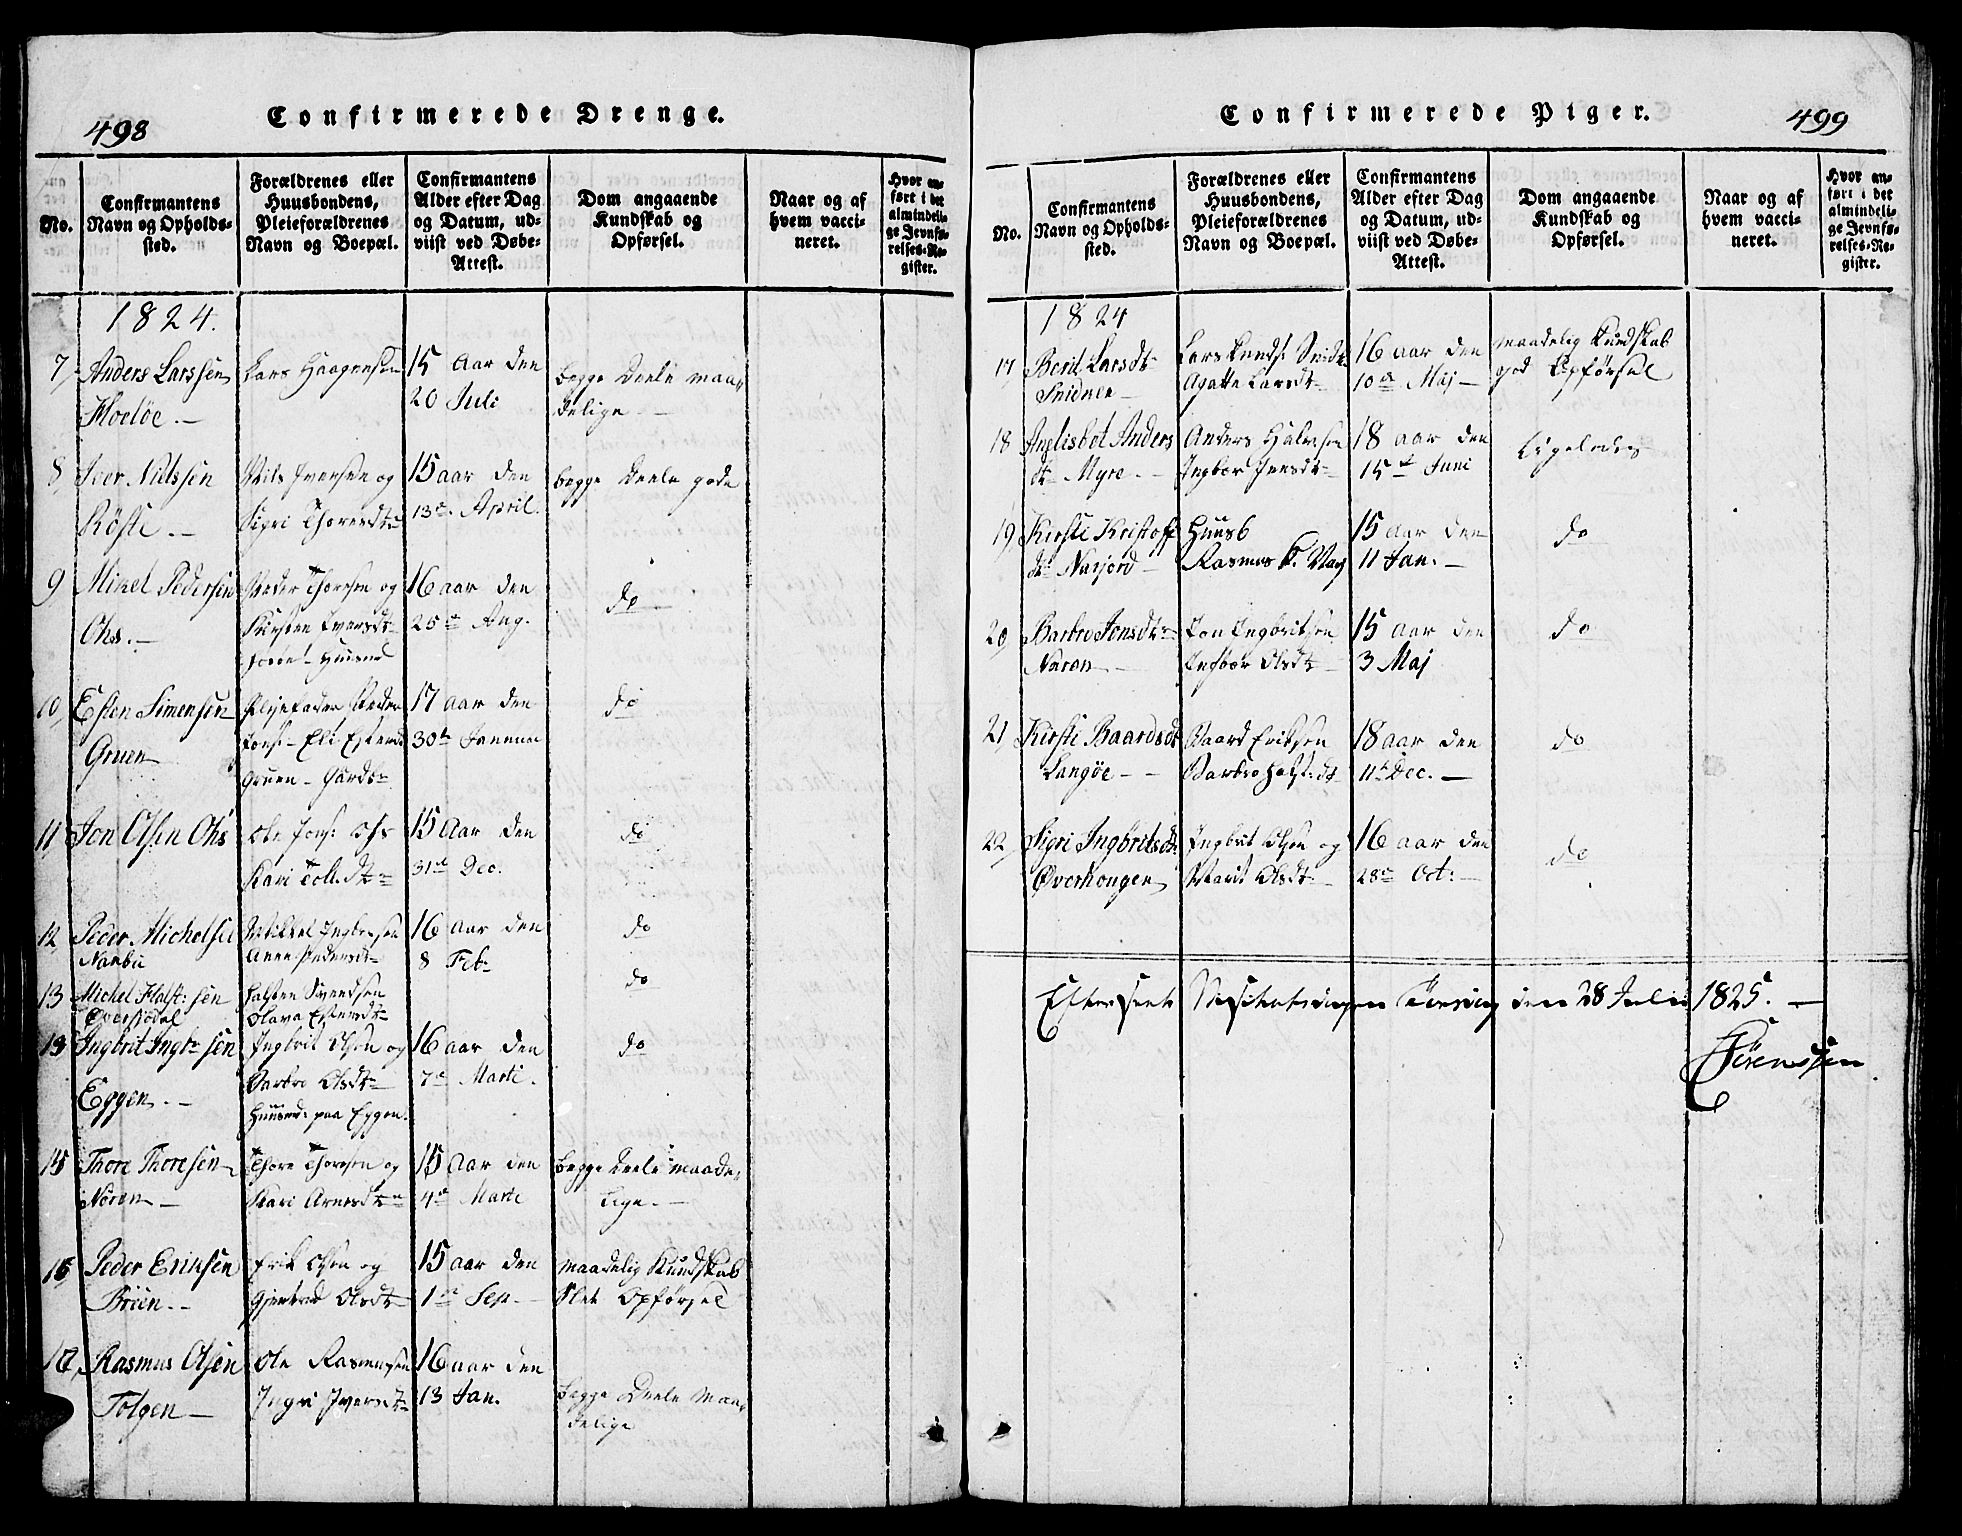 498
Confirmerede Drenge.
No.
Confirmantens
Navn og Opholds-
sted.
Forældrenes eller
Huusbondens,
Pleieforældrenes
Navn og Boepæl.
Confirmantens
Alder efter Dag
og Datum, ud-
viist ved Døbe-
Attest.
Dom angaaende
Kundskab og
Opførsel.
Naar og af
hvem vacci-
neret.
Hvor an-
ført i det
almindeli-
ge Jevnfø-
relses-Re-
gister.
1824.
7,
Anders Larssen
Floeløe.
Lars Haagensen
15 Aar den
20 Juli
begge Deele maa-
delige
8,
Iver Nielssen
Röste.
Nils Iversen og
Sigri Thoresdtr
15 aar den
13de April.
begge Deele gode
9
Mikel Pedersen
Ohs.
Peder Thoresen og
Kirsten Iversdtr
16 aar den
25de Aug.
do
10,
Esten Simensen
Gruen
Plejefader Peder
Jons. Eli Estensd
Gruen Gårdbr
17 aar den
30te Januar
do
11,
Jon Olsen Ohs
Ole Jons: Ohs
Kari Toll:dtr
15 Aar den
31te Dec.
do
12
Peder Michelsen
Narbu
Mikkel Ingbr:sen
Anne Pedersdtr
16 Aar den
8 Feb
do
13
Michel Halst:sen
Halsten Svendsen
Olava Estensdtr
do
13
Ingbrit Ingbr:sen
Eggen.
Ingbrit Olsen og
Barbro Olsdtr
Huusmd: paa Eggen.
16 aar den
7de Marti.
do
15
Thore Thoresen
Nören
Thore Thoresen og
Kari Arnesdtr
15 Aar den
4de Marti
begge Deele maade-
lige.
16,
Peder Eriksen
Brien.
Erik Olsen og
Gjertrud Olsdtr
15 aar den
1de Sep.
maadelig Kundskab
Slet Opførsel
17,
Rasmus Olsen
Tolgen
Ole Rasmussen
Ingri Iversdtr
16 aar den
13 Jan.
begge Deele maa-
delige
Confirmerede Piger.
499
No.
Confirmantens
Navn og Opholds-
sted.
Forældrenes eller
Huusbondens,
Pleieforældrenes
Navn og Boepæl.
Confirmantens
Alder efter Dag
og Datum, ud-
viist ved Døbe-
Attest.
Dom angaaende
Kundskab og
Opførsel.
Naar og af
hvem vacci-
neret.
Hvor an-
ført i det
almindeli-
ge Jevnfø-
relses-Re-
gister.
1824
17
Berit Larsdtr
Lars
Agatte Larsdtr
16 aar den
10de Maj
maadelig Kundskab
god Opførsel
18
Anelisbet Anders
dtr Myre.
Anders Halvorsen
Ingbor Jensdtr
18 aar den
15de Juni
Ligeledes
19,
Kirsti Kristoff
dtr Narjord
Huusb
Rasmus
15 aar den
11 Jan.
do
20,
Barbro Jonsdtr
Nören
Jon Ingbritsen
Ingbor Olsdtr
15 Aar den
3 Maj
do
21,
Kirsti Baardsdt
Langöe
Baard Eriksen
Barbro Halst:dt
18 aar den
11te Dec.
do
22,
Sigri Ingbritsdt
Øverhougen
Ingbrit Olsen og
Marit Olsdtr
16 aar den
28de Oct:
do
Efterseet Visitatsdagen Torsdag den 28 Julii 1825.
Sörenssen